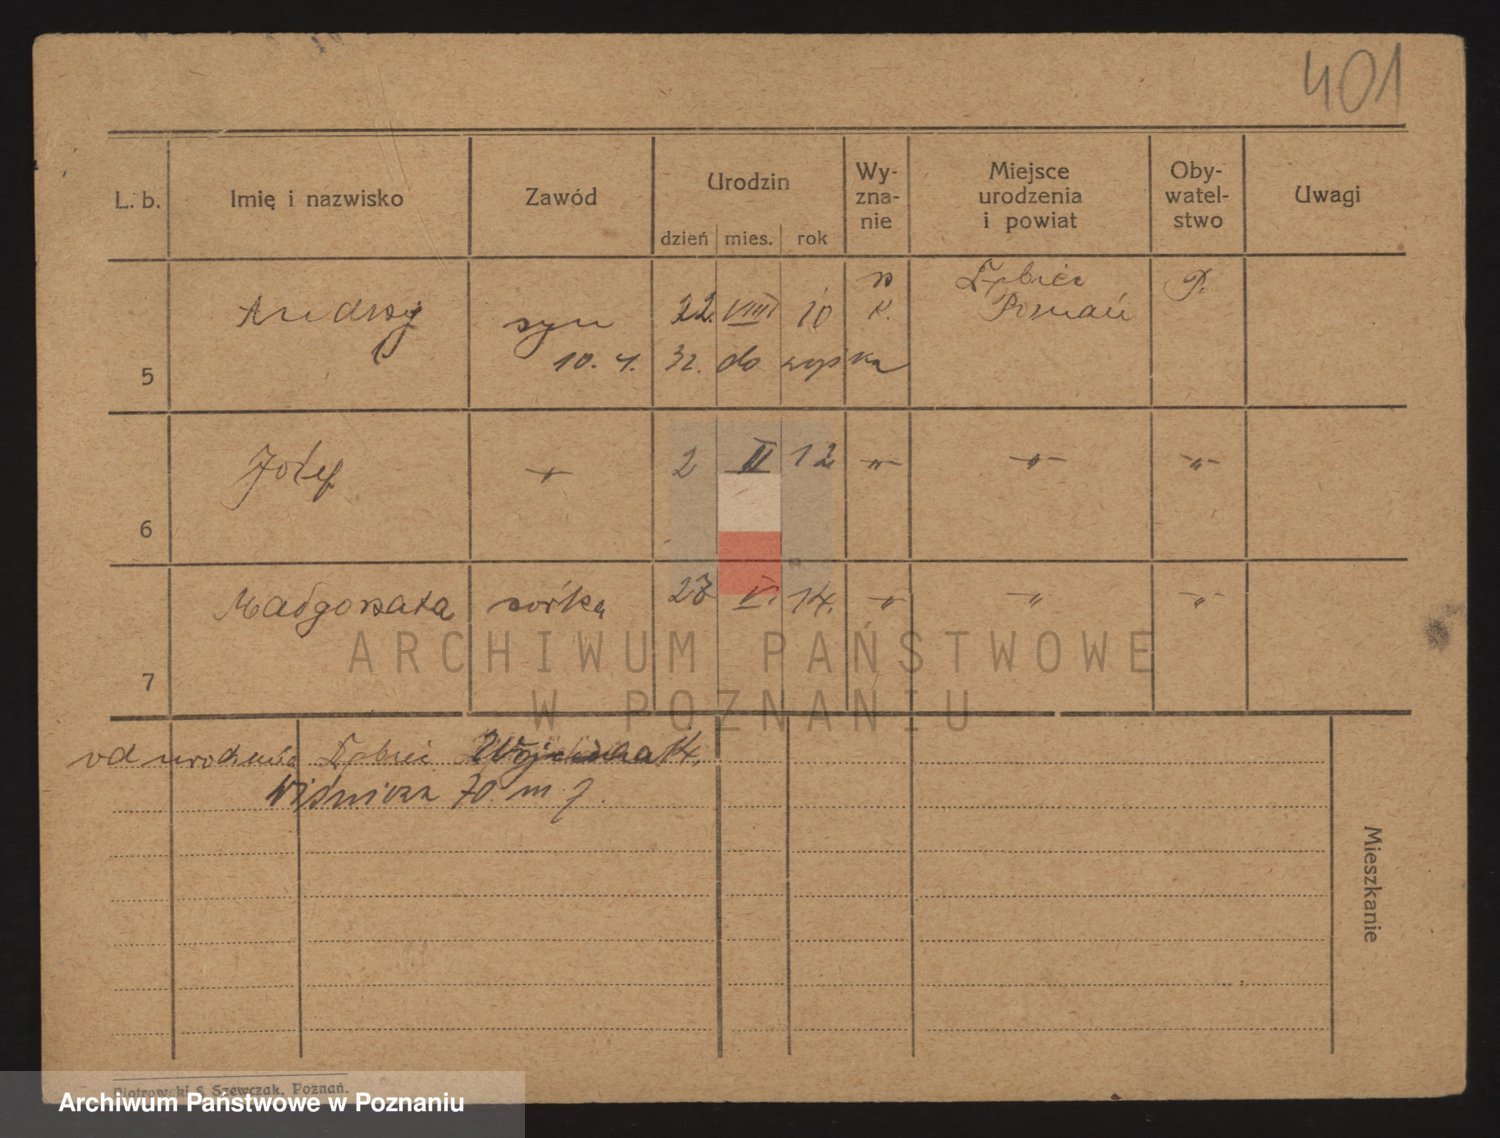 401
L. b. Imię i nazwisko Zawód Urodzin Wy-zna-nie Miejsce urodzenia i powiat Oby-watel-stwo Uwagi
dzień mies. rok
5 Andrzej syn 22. VIII 10 r. k. Dębiec Poznań P.
10. 4. 32. do wojska
6 Józef -„- 2 II 12 -„- -„- -„-
7 Małgorzata córka 27 V. 14. -„- -„- -„-
od urodzenia Dębiec 14.
70. m 7.
Mieszkanie
Piotrowski & Szewczak, Poznań.
ARCHIWUM PAŃSTWOWE
W POZNANIU
Archiwum Państwowe w Poznaniu